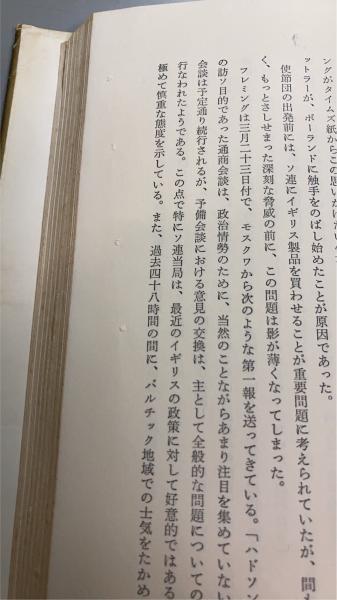 ングがタイムズ紙からこの思いがけない
ットラーが、ポーランドに触手をのばし始めたことが原因であった。
使節団の出発前には、ソ連にイギリス製品を買わせることが重要問題に考えられていたが、間も
く、もっとさしせまった深刻な脅威の前に、この問題は影が薄くなってしまった。
フレミングは三月二十三日付で、モスクワから次のような第一報を送ってきている。「ハドソン
の訪ソ目的であった通商会談は、政治情勢のために、当然のことながらあまり注目を集めていない
会談は予定通り続行されるが、予備会談における意見の交換は、主として全般的な問題についての
行なわれたようである。この点で特にソ連当局は、最近のイギリスの政策に対して好意的ではある
極めて慎重な態度を示している。また、過去四十八時間の間に、バルチック地域での士気をたかめ